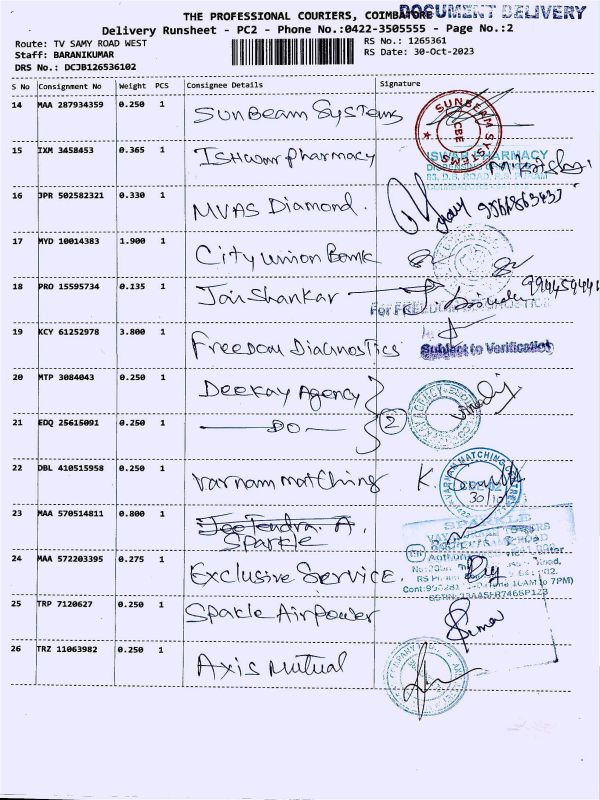 THE PROFESSIONAL COURIERS, COIMBATORE DOCUMENT DELIVERY
Delivery Runsheet - PC2 - Phone No.:0422-3505555 - Page No.:2
Route: TV SAMY ROAD WEST RS No.: 1265361
Staff: BARANIKUMAR RS Date: 30-Oct-2023
DRS No.: DCJB126536102
S No Consignment No Weight PCS Consignee Details Signature
14 MAA 287934359 0.250 1 SunBeam Systems
SUNBEAM SYSTEMS CBE
15 IXM 3458453 0.365 1 Ishwar Pharmacy
PHARMACY
16 JPR 502582321 0.330 1 MVAS Diamond.
17 MYD 10014383 1.900 1 City Union Bank
18 PRO 15595734 0.135 1 Jai Shankar
For FREEDOM DIAGNOSTICS
19 KCY 61252978 3.800 1 Freedom Diagnostics
Subject to Verification
20 MTP 3084043 0.250 1 Deekay Agency
21 EDQ 25615091 0.250 1 DO
22 DBL 410515958 0.250 1 Varnam Matching
30/10
23 MAA 570514811 0.800 1 Jeetendra. A.
Sparkle
SPARKLE
24 MAA 572203395 0.275 1 Exclusive Service.
25 TRP 7120627 0.250 1 Sparkle Air Power
26 TRZ 11063982 0.250 1 Axis Mutual